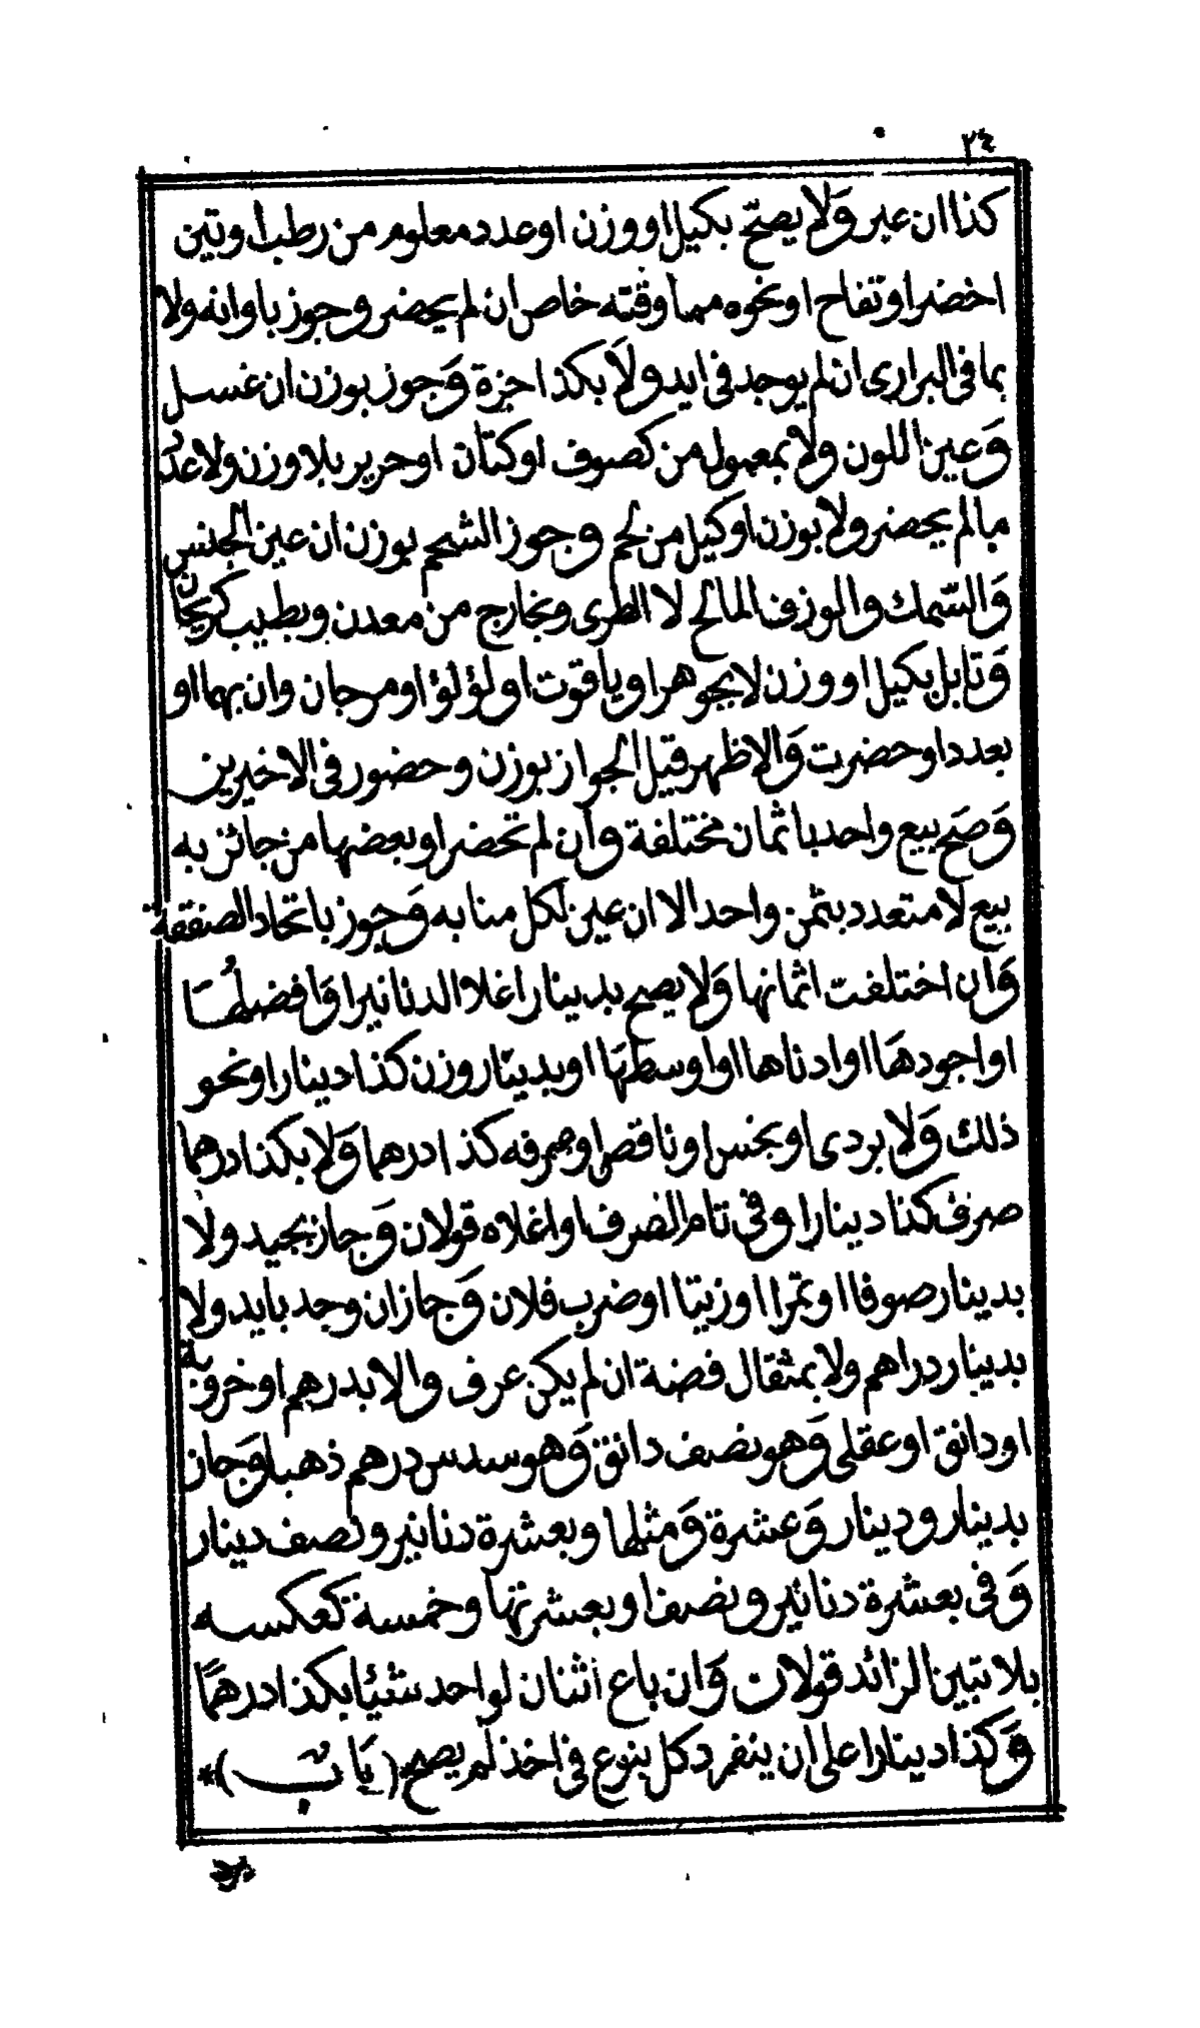 ٢٤
كذا ان عبر ولا يصحّ بكيل او وزن او عدد معلوم من رطب او تين
اخضر او تفاح او نحوه مما وقته خاص ان لم يحضر وجوز باوانه ولا
بما فى البرارى ان لم يوجد فى ايد ولا بكذا جزة وجوز بوزن ان غسل
وعين اللون ولا بمعمول من كصوف او كتان او حرير بلا وزن ولا عدد
ما لم يحضر ولا بوزن او كيل من لحم وجوز الشحم بوزن ان عين الجنس
والسّمك والوزف المالح لا الطرى وبخارج من معدن وبطيب كريحان
وتابل بكيل او وزن لا بجوهر او ياقوت او لؤلؤ او مرجان وان بهما او
بعدد او حضرت والاظهر قيل الجواز بوزن وحضور فى الاخيرين
وصح بيع واحد باثمان مختلفة وان لم تحضر او بعضها من جائز به
بيع لا متعدد بثمن واحد الا ان عين لكل منابه وجوز باتحاد الصفقة
وان اختلفت اثمانها ولا يصح بدينار اغلا الدنانير او افضلها
او اجودها او ادناها او اوسطها او بدينار وزن كذا دينارا ونحو
ذلك ولا بردى او بخس او ناقص او صرفه كذا درهما ولا بكذا درهما
صرف كذا دينارا وفى تام الصرف او اغلاه قولان وجاز بجيد ولا
بدينار صوفا او تمرا او زيتا او ضرب فلان وجاز ان وجد بايد ولا
بدينار دراهم ولا بمثقال فضة ان لم يكن عرف والا بدرهم او خروبة
او دانق او عقلى وهو نصف دانق وهو سدس درهم ذهبا وجاز
بدينار ودينار وعشرة ومثلها وبعشرة دنانير ونصف دينار
وفى بعشرة دنانير ونصف او بعشرتها وخمسة كعكسه
بلا تبين الزائد قولان وان باع اثنان لواحد شئيا بكذا درهمًا
وكذا دينارا على ان ينفرد كل بنوع فى اخذ لم يصح (بَابٌ)*